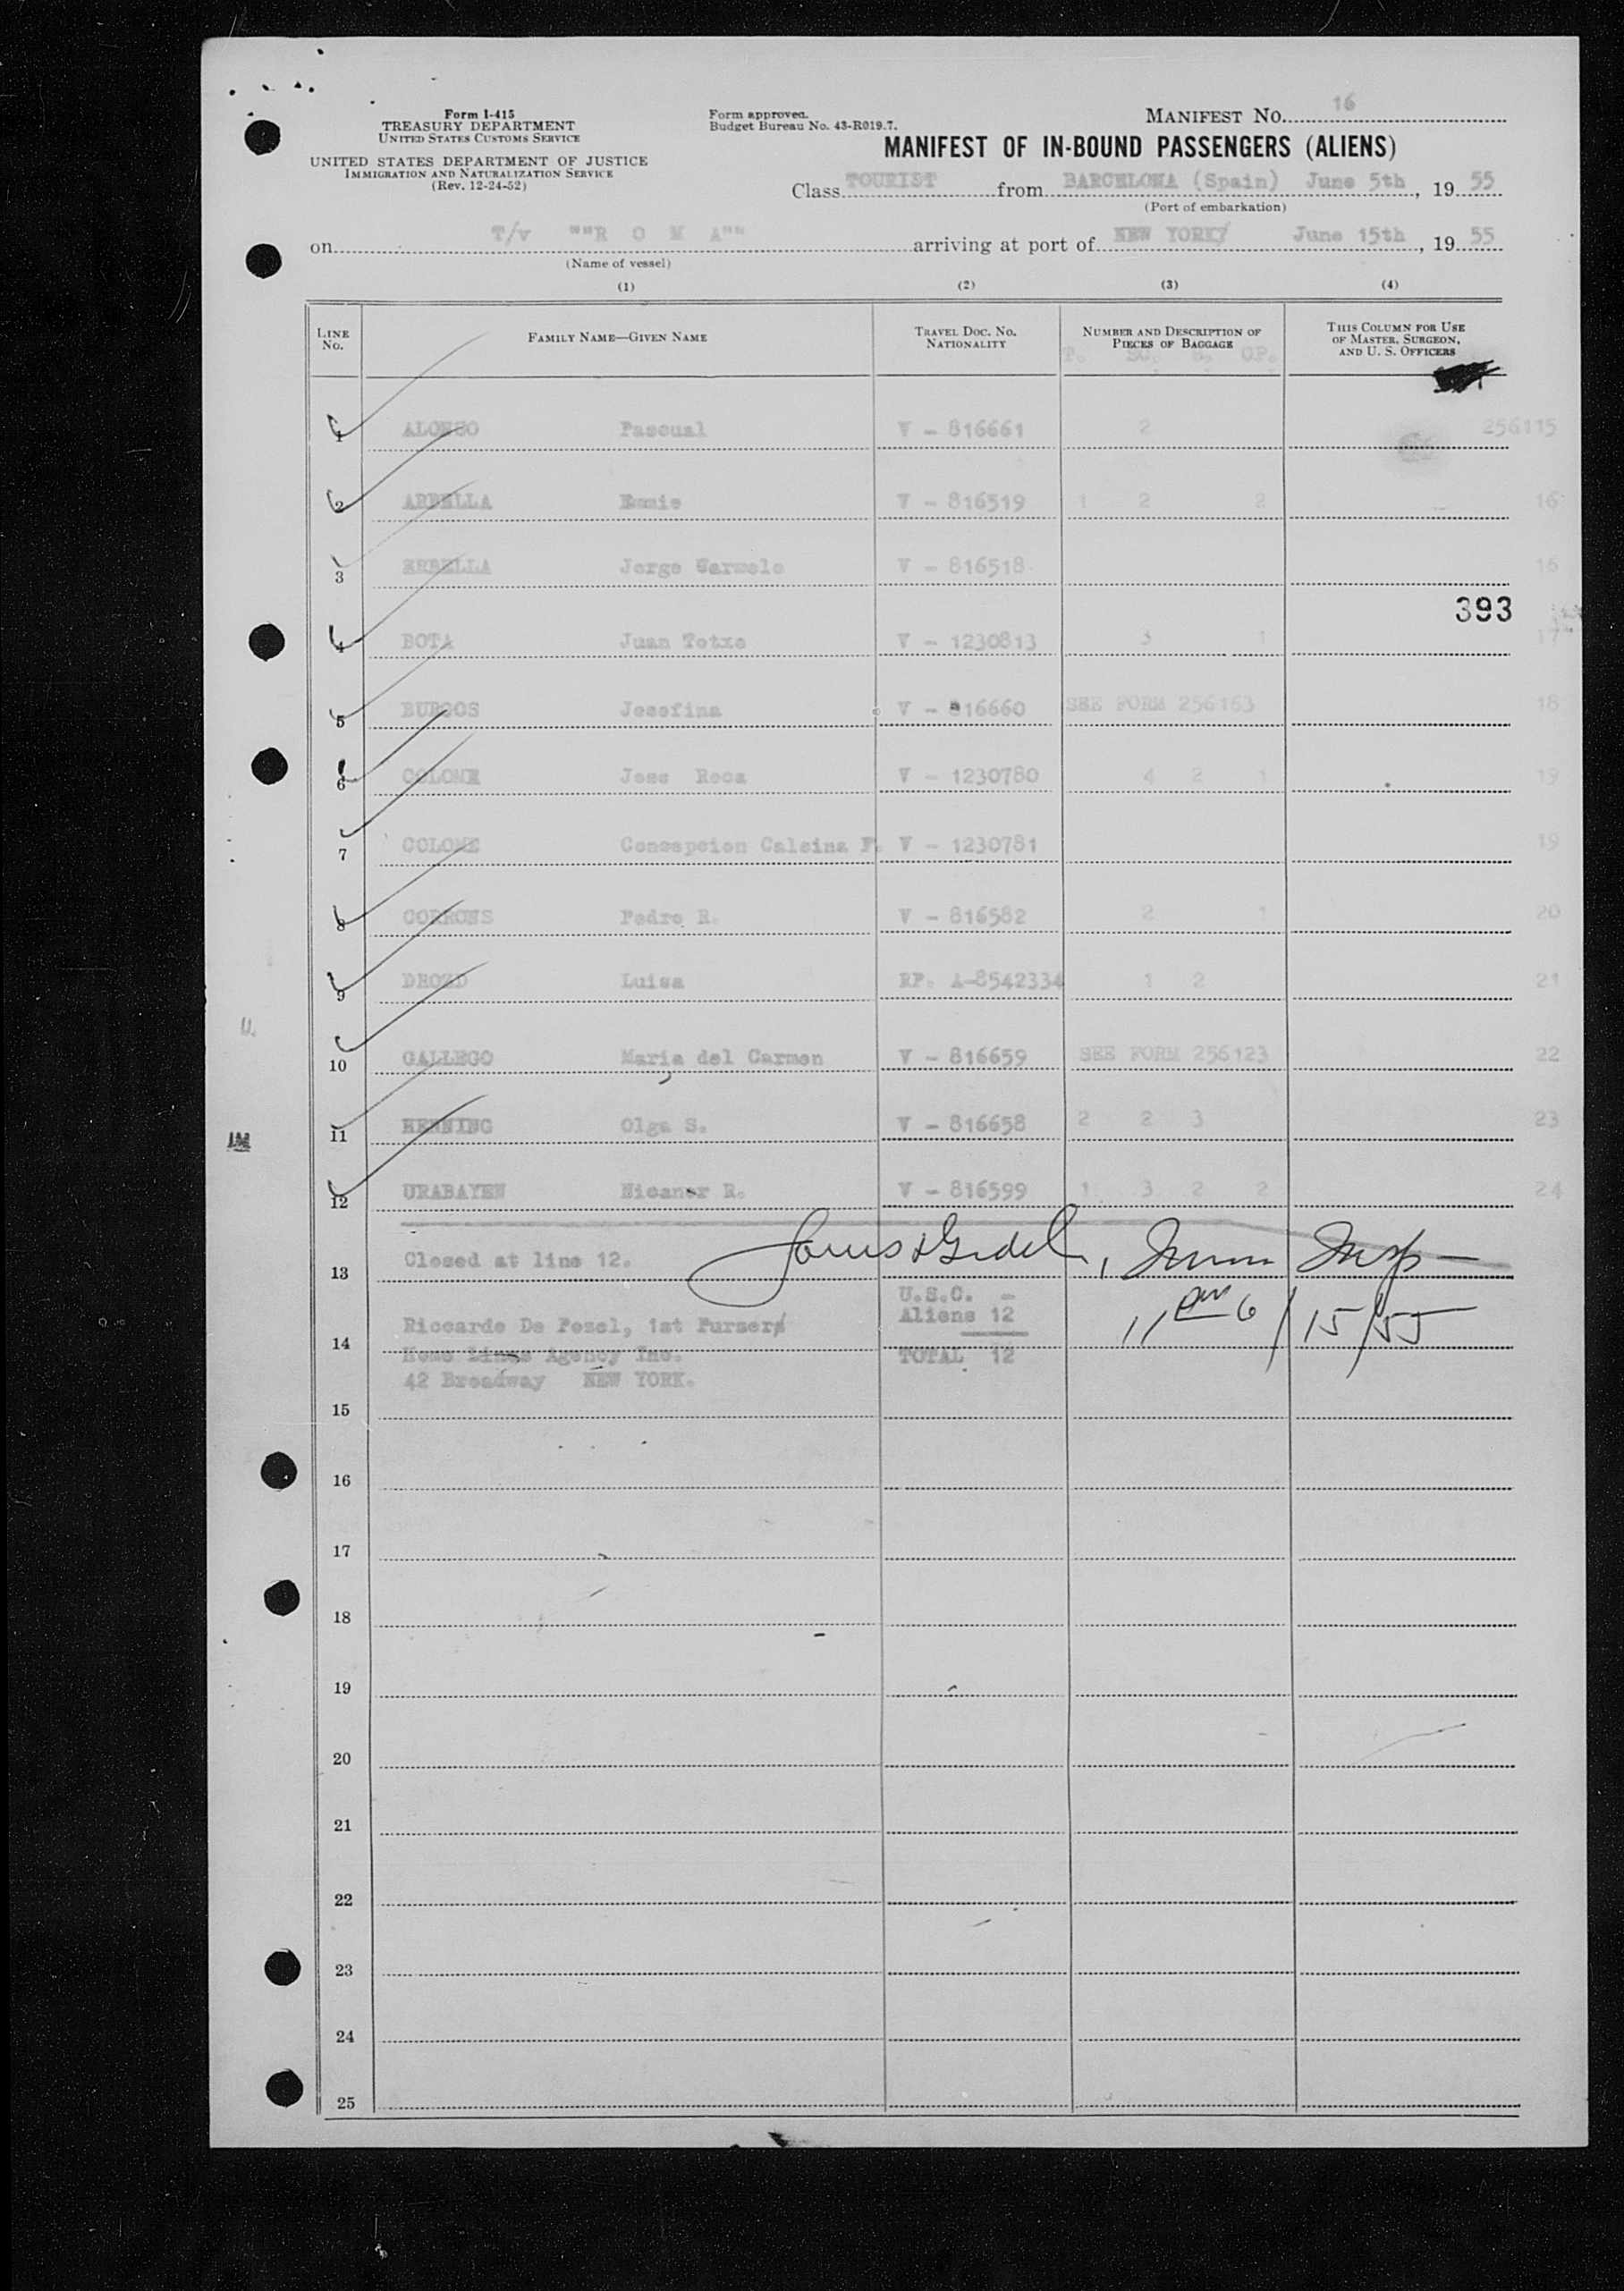 Form I-415
TREASURY DEPARTMENT
UNITED STATES CUSTOMS SERVICE
UNITED STATES DEPARTMENT OF JUSTICE
IMMIGRATION AND NATURALIZATION SERVICE
(Rev. 12-24-52)
Form approved.
Budget Bureau No. 43-R019.7.
MANIFEST NO. 16
MANIFEST OF IN-BOUND PASSENGERS (ALIENS)
Class TOURIST from BARCELONA (Spain) June 5th, 19 55
(Port of embarkation)
on T/v ""R O M A"" arriving at port of NEW YORK June 15th, 19 55
(Name of vessel)
(1) (2) (3) (4)
LINE NO. FAMILY NAME—GIVEN NAME TRAVEL DOC. NO. NATIONALITY NUMBER AND DESCRIPTION OF PIECES OF BAGGAGE THIS COLUMN FOR USE OF MASTER, SURGEON, AND U. S. OFFICERS
1 ALONSO Pascual V - 816661 2 256115
2 ARBELLA V - 816519 1 2 2 16
3 Jorge V - 816518 16
393
4 BOTA Juan Totxo V - 1230813 3 1 17
5 BURGOS Josefina V - 816660 SEE FORM 256163 18
6 COLOME Jose Roca V - 1230780 4 2 1 19
7 COLOME Concepcion Calsina F. V - 1230781 19
8 CORRONS Pedro R. V - 816582 2 1 20
9 DROZD Luisa RP. A-8542334 1 2 21
10 GALLEGO Maria del Carmen V - 816659 SEE FORM 256123 22
11 HENNING Olga S. V - 816658 2 2 3 23
12 URABAYEN Nicanor R. V - 816599 1 3 2 2 24
13 Closed at line 12.
U.S.C. -
Aliens 12
11 pm 6/15/55
14 Riccardo De Pesel, 1st Purser
Home Lines Agency Inc. TOTAL 12
42 Broadway NEW YORK.
15
16
17
18
19
20
21
22
23
24
25